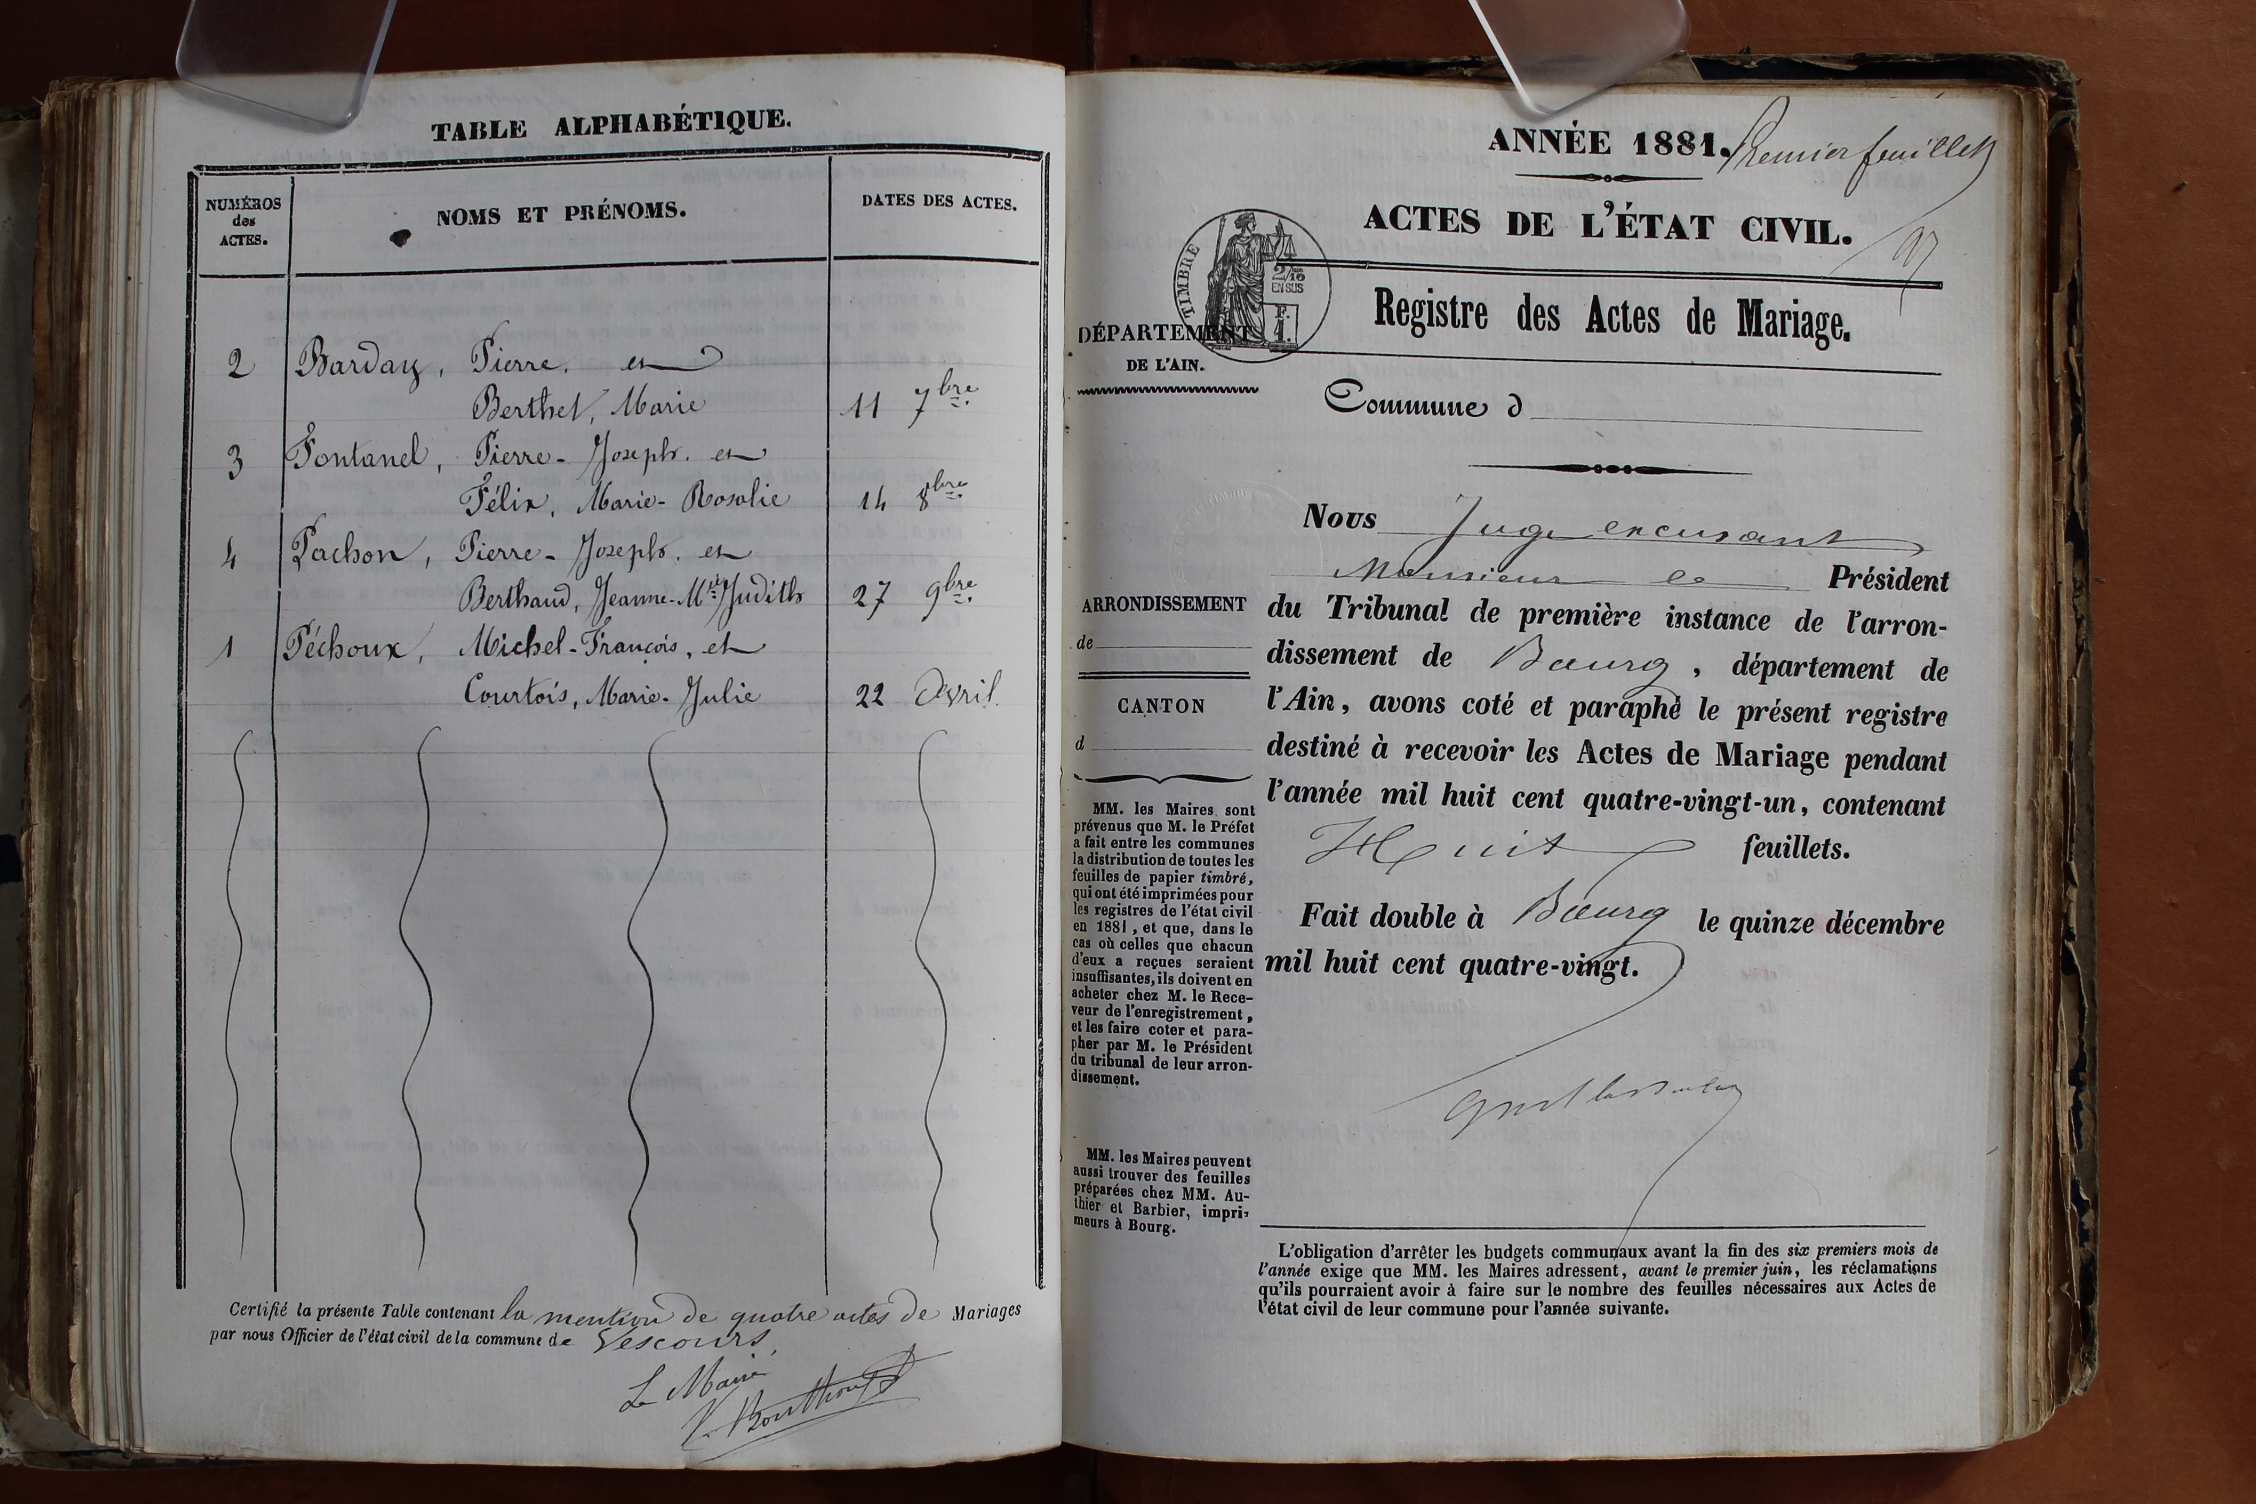 TABLE ALPHABÉTIQUE.
NUMÉROS
des
ACTES.
NOMS ET PRÉNOMS.
DATES DES ACTES.
2 Barday, Pierre. et
Berthet, Marie 11 7bre.
3 Fontanel, Pierre-Joseph. et
Félix, Marie-Rosalie 14 8bre.
4 Pachon, Pierre-Joseph. et
Berthaud, Jeanne-Mie Judith 27 9bre.
1 Péchoux, Michel-François, et
Courtois, Marie-Julie 22 Avril.
Certifié la présente Table contenant la mention de quatre actes de Mariages
par nous Officier de l'état civil de la commune de Vescours,
Le Maire
ANNÉE 1881. Premier feuillet
ACTES DE L'ÉTAT CIVIL.
TIMBRE
2/10
EN SUS
F.
1.
Registre des Actes de Mariage.
DÉPARTEMENT
DE L'AIN.
Commune d
Nous Juge excusant
Monsieur le Président
du Tribunal de première instance de l'arron-
dissement de Bourg, département de
l'Ain, avons coté et paraphé le présent registre
destiné à recevoir les Actes de Mariage pendant
l'année mil huit cent quatre-vingt-un, contenant
Huit feuillets.
Fait double à Bourg le quinze décembre
mil huit cent quatre-vingt.
ARRONDISSEMENT
de
CANTON
d
MM. les Maires sont
prévenus que M. le Préfet
a fait entre les communes
la distribution de toutes les
feuilles de papier timbré,
qui ont été imprimées pour
les registres de l'état civil
en 1881, et que, dans le
cas où celles que chacun
d'eux a reçues seraient
insuffisantes, ils doivent en
acheter chez M. le Rece-
veur de l'enregistrement,
et les faire coter et para-
pher par M. le Président
du tribunal de leur arron-
dissement.
MM. les Maires peuvent
aussi trouver des feuilles
préparées chez MM. Au-
thier et Barbier, impri-
meurs à Bourg.
L'obligation d'arrêter les budgets communaux avant la fin des six premiers mois de
l'année exige que MM. les Maires adressent, avant le premier juin, les réclamations
qu'ils pourraient avoir à faire sur le nombre des feuilles nécessaires aux Actes de
l'état civil de leur commune pour l'année suivante.